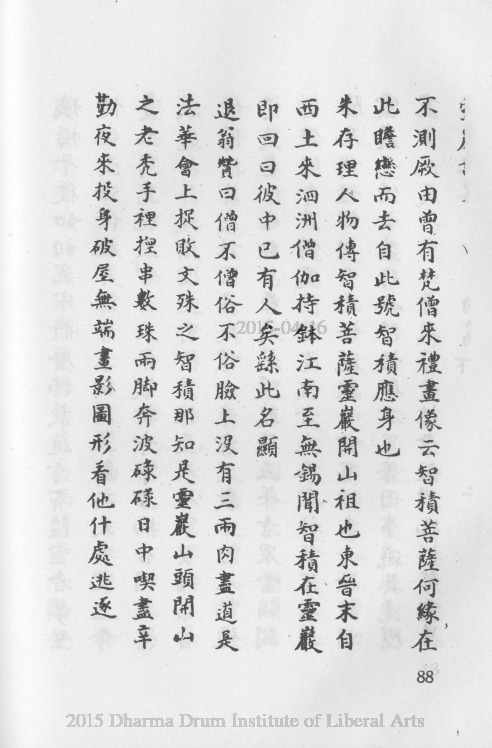 不測厥由曾有梵僧來禮畫像云智積菩薩何緣在
此瞻戀而去自此號智積應身也
朱存理人物傳智積菩薩靈巖開山祖也東晉末自
西土來泗洲僧伽持鉢江南至無錫聞智積在靈巖
即回曰彼中已有人矣繇此名顯
退翁贊曰僧不僧俗不俗臉上沒有三兩肉盡道是
法華會上捉敗文殊之智積那知是靈巖山頭開山
之老禿手裡捏串數珠兩脚奔波碌碌日中喫盡辛
勤夜來投身破屋無端畫影圖形看他什處逃逐
2015-04-16
88
2015 Dharma Drum Institute of Liberal Arts